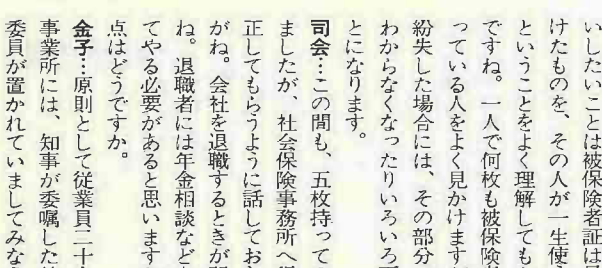 いしたいことは被保険者証は
けたものを、その人が一生使
ということをよく理解しても
ですね。一人で何枚も被保険
っている人をよく見かけます
紛失した場合には、その部分
わからなくなったりいろいろ
とになります。
司会…この間も、五枚持って
ましたが、社会保険事務所へ
正してもらうように話してお
がね。会社を退職するときが
ね。退職者には年金相談など
てやる必要があると思います
点はどうですか。
金子…原則として従業員二十
事業所には、知事が委嘱した
委員が置かれていましてみな